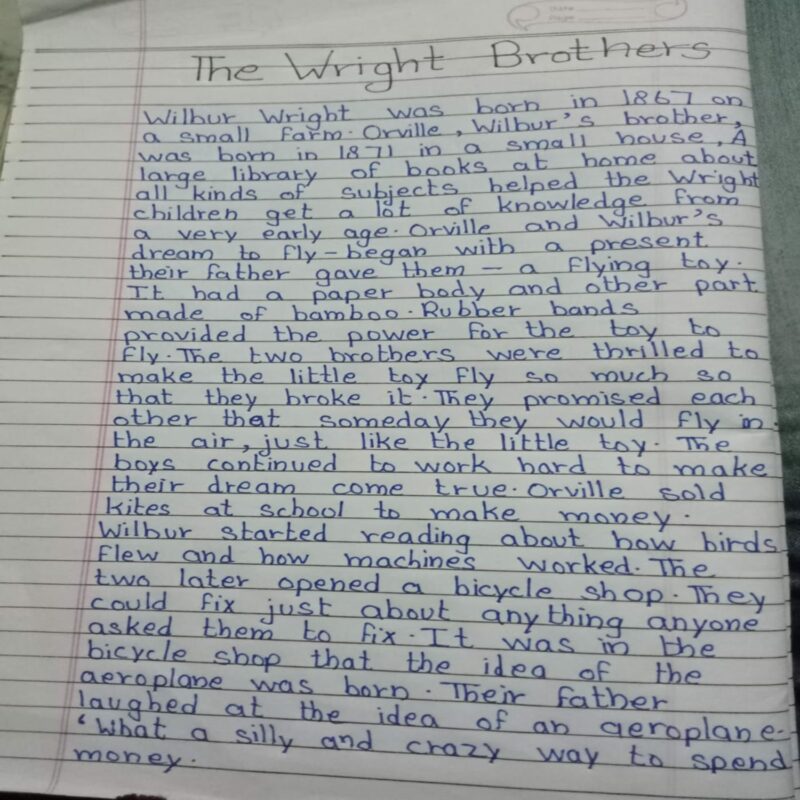 The Wright Brothers
Wilbur Wright was born in 1867 on
a small farm. Orville, Wilbur's brother,
was born in 1871 in a small house, A
large library of books at home about
all kinds of subjects helped the Wright
children get a lot of knowledge from
a very early age. Orville and Wilbur's
dream to fly - began with a present
their father gave them - a flying toy.
It had a paper body and other part
made of bamboo. Rubber bands
provided the power for the toy to
fly. The two brothers were thrilled to
make the little toy fly so much so
that they broke it. They promised each
other that someday they would fly in
the air, just like the little toy. The
boys continued to work hard to make
their dream come true. Orville sold
kites at school to make money.
Wilbur started reading about how birds
flew and how machines worked. The
two later opened a bicycle shop. They
could fix just about anything anyone
asked them to fix. It was in the
bicycle shop that the idea of the
aeroplane was born. Their father
laughed at the idea of an aeroplane-
'What a silly and crazy way to spend
money.